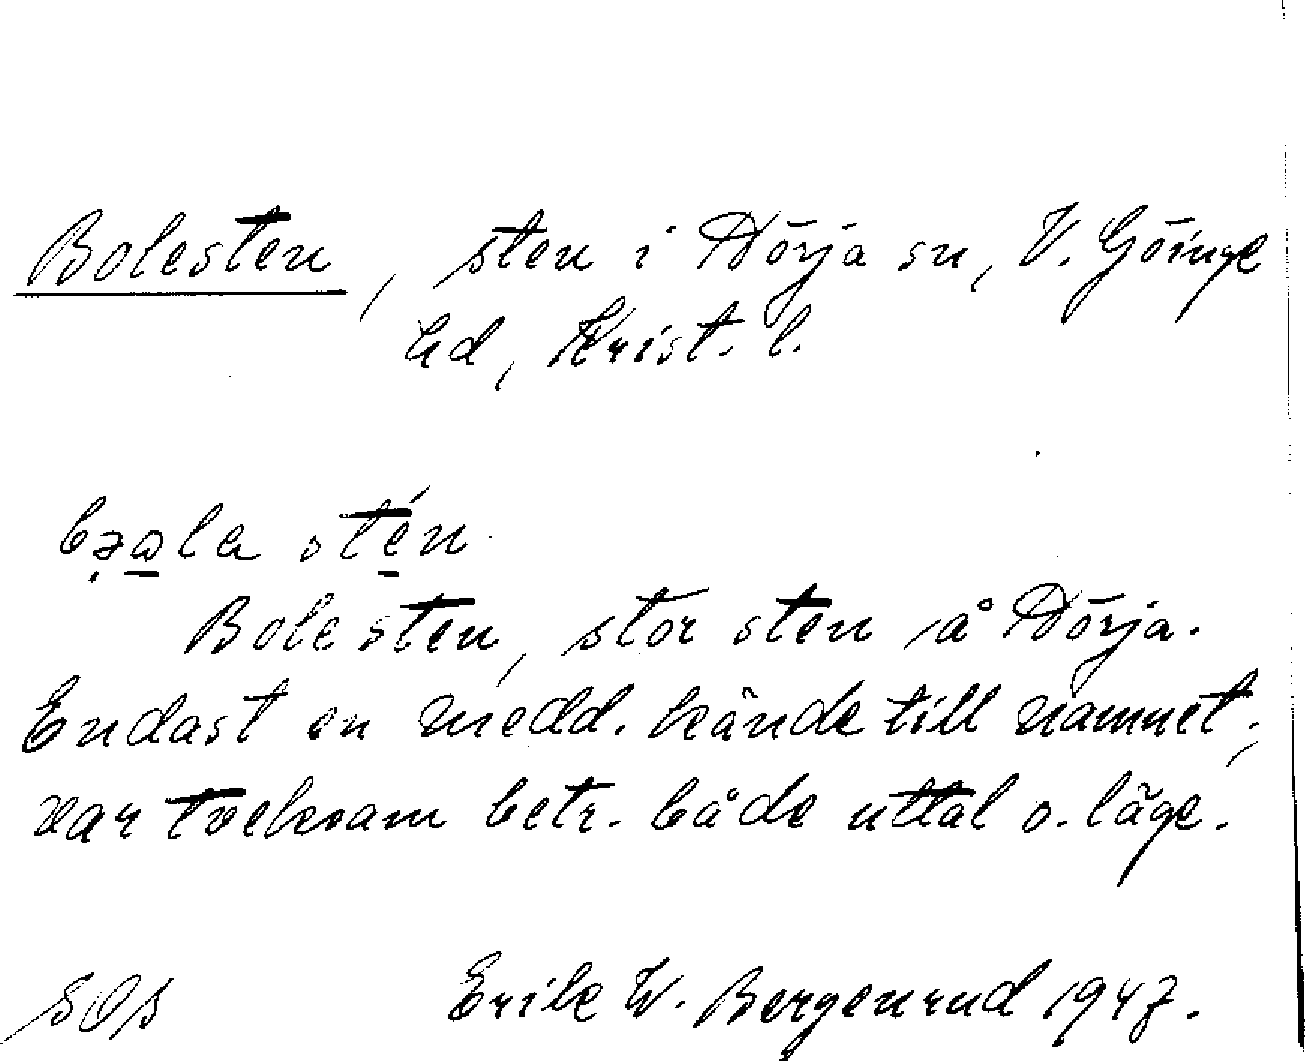 Bolesten, sten i Nörja sn, V. Göinge
hd, Krist. l.
sten
Bolesten, stor sten å Nörja.
Endast en medd. kände till namnet;
var tveksam betr. både uttal o. läge.
SOS Erik W. Bergenrud 1947.